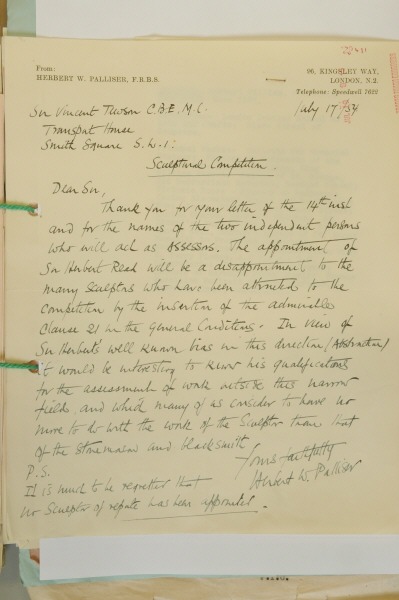 From:
HERBERT W. PALLISER, F.R.B.S.
96, KINGSLEY WAY,
LONDON, N.2.
Telephone: Speedwell 7622
Sir Vincent Tewson C.B.E. M.C.
July 17, 54
Transport House
Smith Square S.W.1.
Sculptural Competition.
Dear Sir,
Thank you for your letter of the 14th inst
and for the names of the two independent persons
who will act as assessors. The appointment of
Sir Herbert Read will be a disappointment to the
many sculptors who have been attracted to the
Competition by the insertion of the admirable
Clause 21 in the General Conditions. In view of
Sir Herbert's well known bias in this direction (Abstraction)
it would be interesting to know his qualifications
for the assessment of work outside this narrow
field, and which many of us consider to have no
more to do with the work of the Sculptor than that
of the stonemason and blacksmith
Yours faithfully
Herbert W. Palliser
P.S.
It is much to be regretted that
no Sculptor of repute has been appointed.